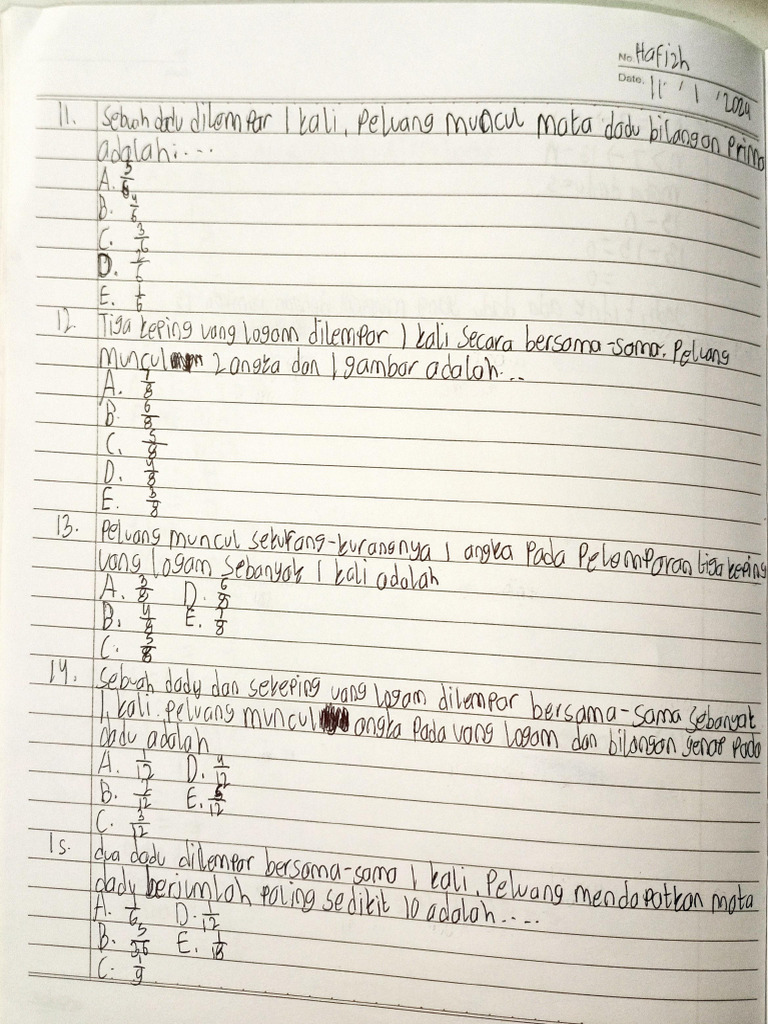 No. Hafizh
Date. 11 / 1 / 2024
11. Sebuah dadu dilempar 1 kali, Peluang muncul mata dadu bilangan Prima
adalah....
A. 5/6
B. 4/6
C. 3/6
D. 2/6
E. 1/6
12. Tiga keping uang logam dilempar 1 kali secara bersama-sama. Peluang
muncul 2 angka dan 1 gambar adalah....
A. 7/8
B. 6/8
C. 5/8
D. 4/8
E. 3/8
13. Peluang muncul sekurang-kurangnya 1 angka Pada Pelemparan tiga keping
uang logam sebanyak 1 kali adalah
A. 3/8 D. 6/8
B. 4/8 E. 7/8
C. 5/8
14. Sebuah dadu dan sekeping uang logam dilempar bersama-sama sebanyak
1 kali. Peluang muncul angka Pada uang logam dan bilangan genap Pada
dadu adalah
A. 1/12 D. 4/12
B. 2/12 E. 5/12
C. 3/12
15. dua dadu dilempar bersama-sama 1 kali. Peluang mendapatkan mata
dadu berjumlah paling sedikit 10 adalah....
A. 1/6 D. 1/12
B. 5/36 E. 1/18
C. 1/9